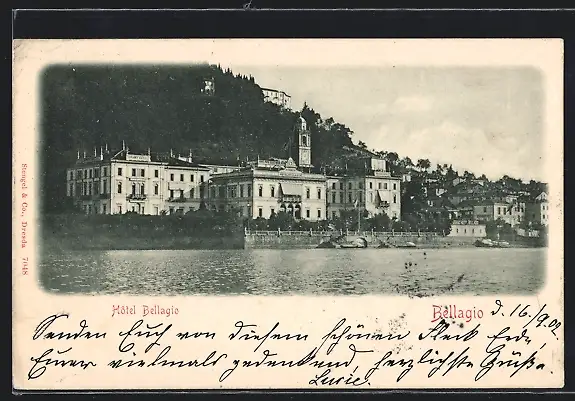 Stengel & Co., Dresda 7048
Hôtel Bellagio
Bellagio d. 16/9.02
Senden Euch von diesem schönen Fleck Erde,
Eurer vielmals gedenkend, herzlichste Grüße
Lucie.